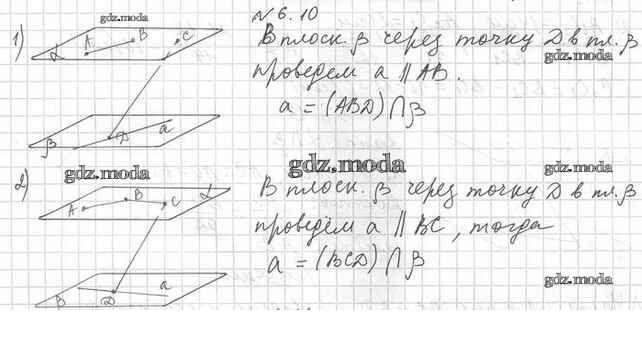 gdz.moda
№ 6.10
1)
A B C
α
D a
β
В плоск. β через точку D в пл. β
gdz.moda
проведем a ∥ AB.
a = (ABD) ⋂ β
gdz.moda
gdz.moda
gdz.moda
2)
A B C α
B D a
В плоск. β через точку D в пл. β
проведём a ∥ BC, тогда
a = (BCD) ⋂ β
gdz.moda